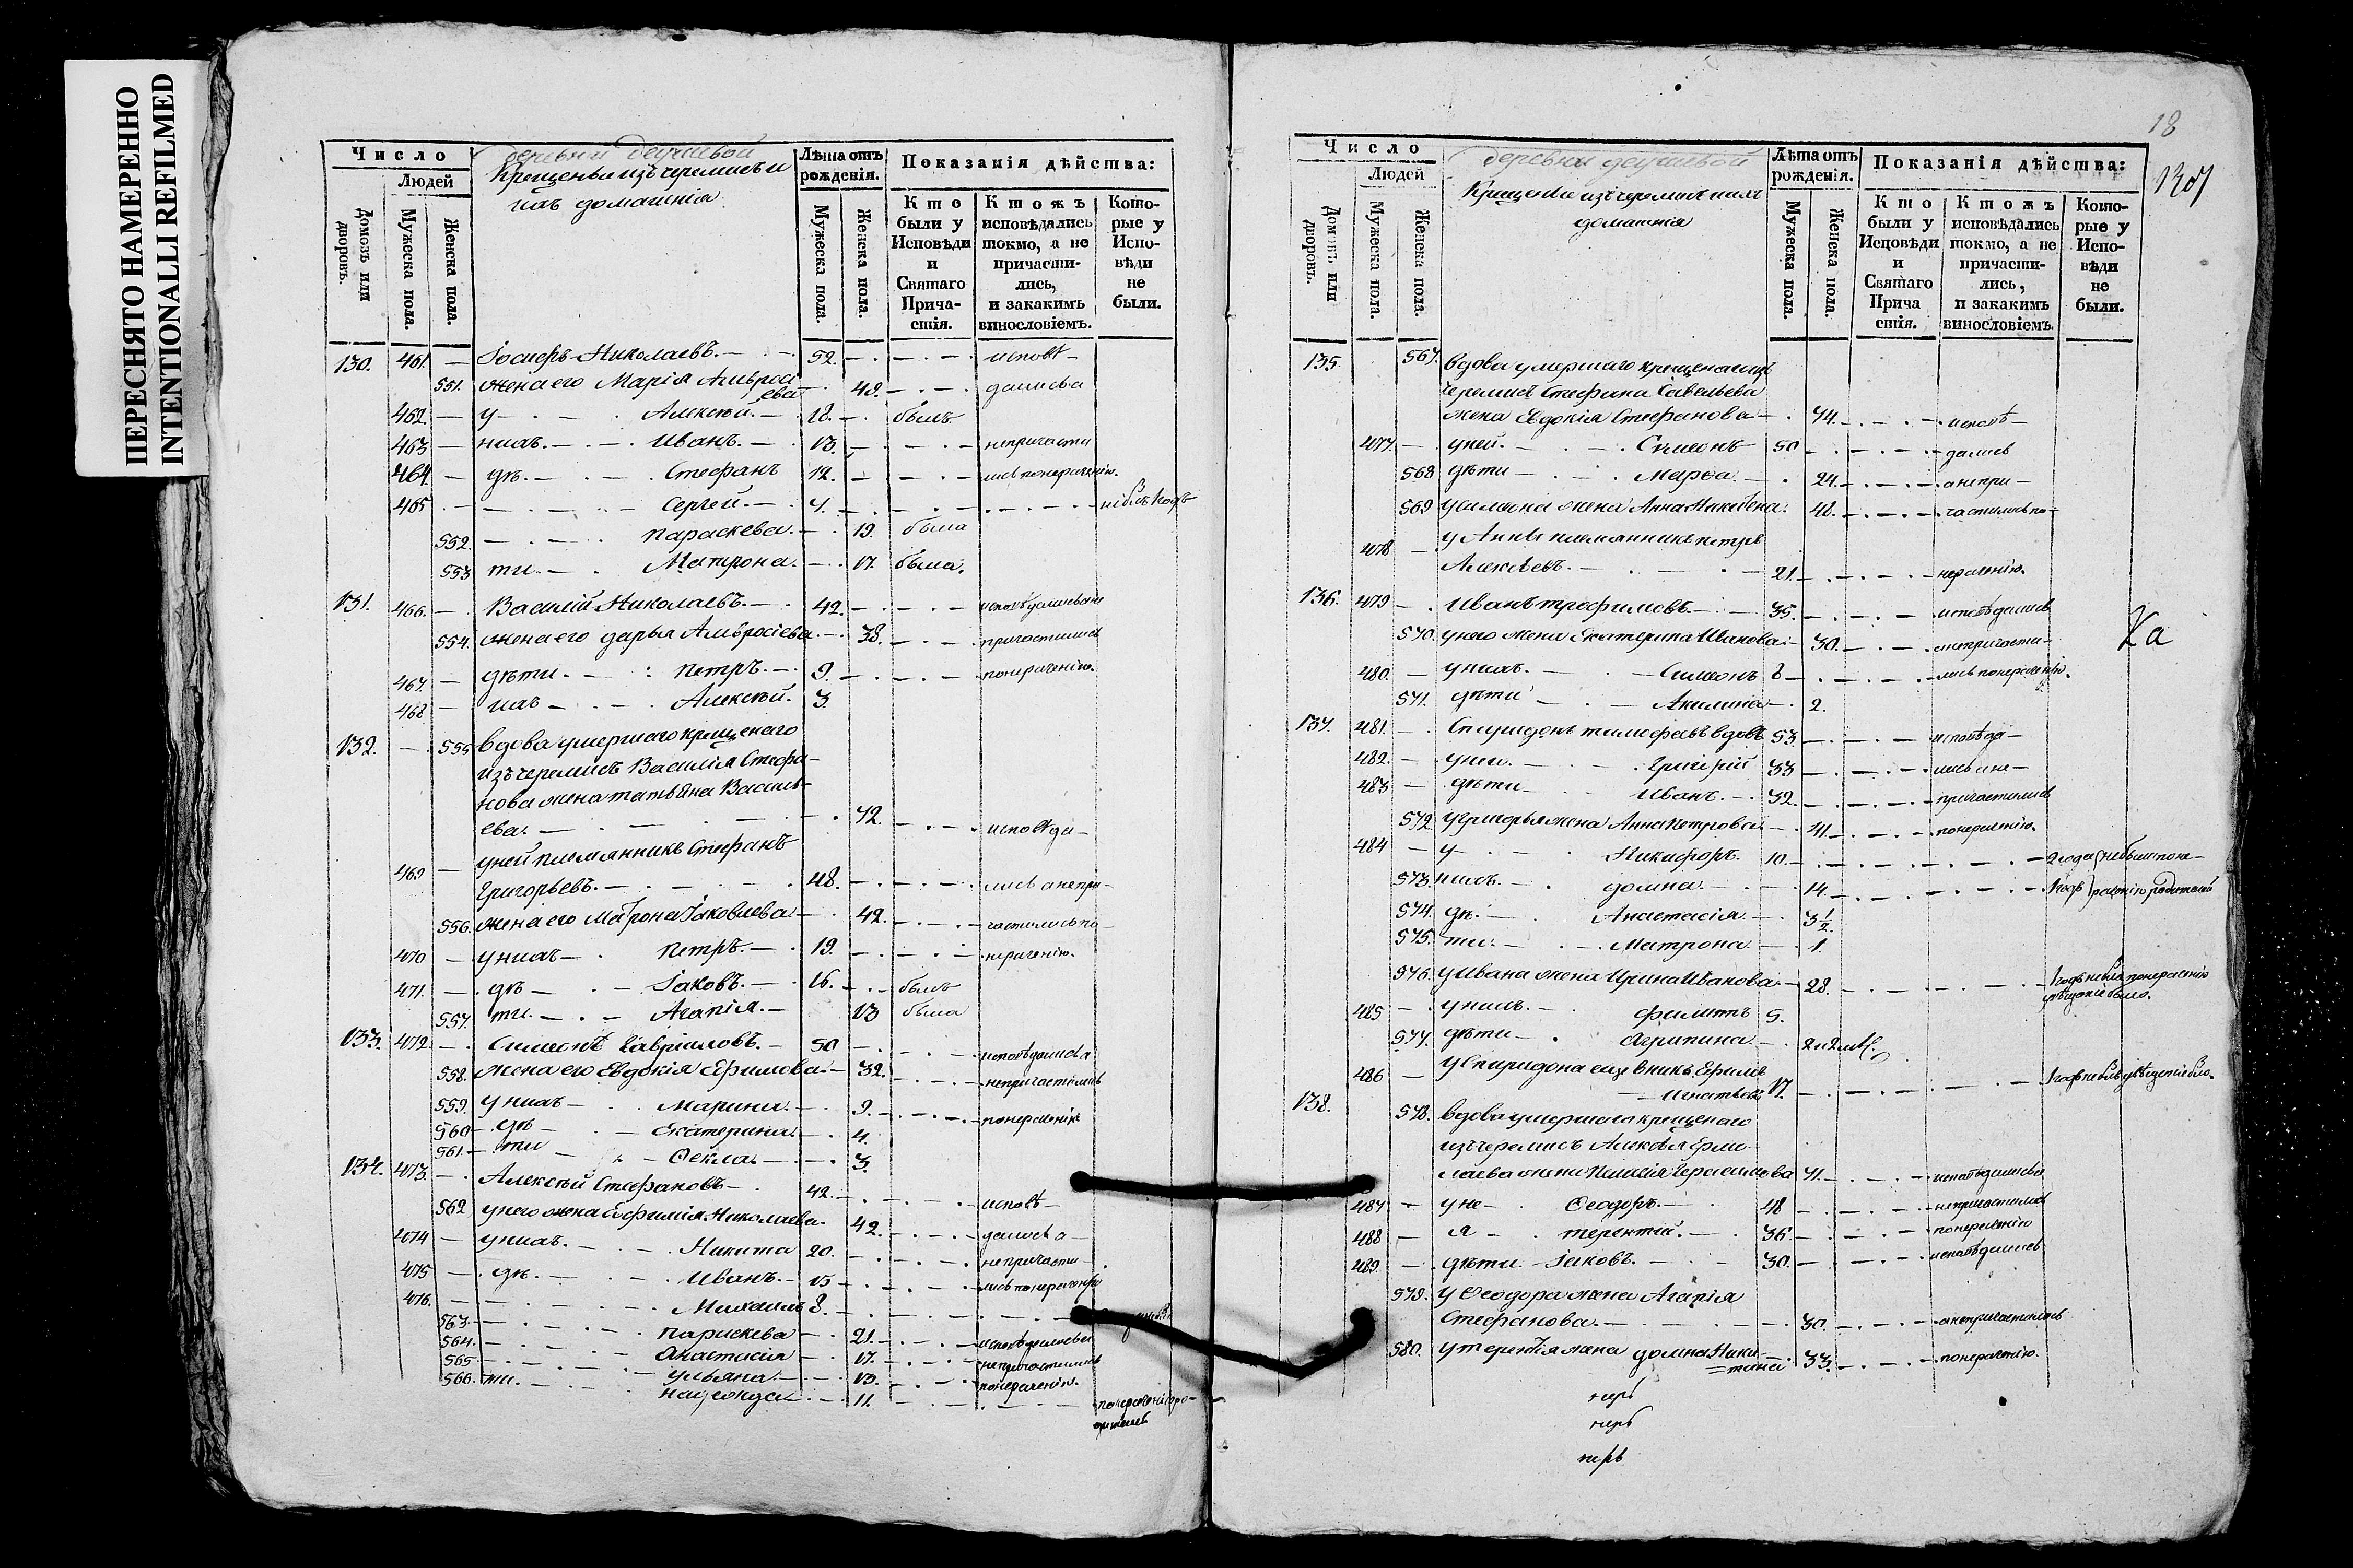 ПЕРЕСНЯТО НАМЕРЕННО
INTENTIONALLI REFILMED
Число
Людей
Домовъ или дворовъ.
Мужеска пола.
Женска пола.
деревни
Крещеныи изъ черемисъ и
ихъ домашнія
Лѣта отъ рожденія.
Мужеска пола.
Женска пола.
Показанія дѣйства:
Кто были у Исповѣди и Святаго Причастія.
Ктожъ исповѣдались токмо, а не причастились, и закакимъ винословіемъ.
Которые у Исповѣди не были.
130. 461. — Іосифъ Николаевъ. — 52. — исповѣ-
551. жена его Марія Амвросіева — 48. — дались а
462. — у — Алексѣй. — 18. — былъ
463 — нихъ. — Иванъ. — 13. — непричасти
464 — дѣ. — Стефанъ 12. — лись понераченію.
465 — Сергей. — 4.
552. — Параскева. — 19. была
553 ти. — Матрона. — 17. была.
131. 466. — Василій Николаевъ. — 42. — исповѣдались а не
554. жена его дарья Амвросіева. — 38. — причастились
467. — дѣти. — Петръ. — 9. — понераченію.
468 — ихъ — Алексѣй. 3.
132. — 555 вдова умершаго крещенаго
изъ черемисъ Василія Стефа-
нова жена татьяна Василь-
ева. — 72. — исповѣда-
469 — у ней племянникъ Стефанъ
Григорьевъ. — 48. — лись а непри-
556. жена его Матрона Іаковлева — 42. — частились по-
470 — у нихъ — Петръ. — 19. — нераченію.
471. — дѣ — Іаковъ. — 16. — былъ
557. ти. — Агапія. — 13 была
133. 472. — Симеонъ Гавриловъ. — 50 — исповѣдались а
558. жена его Евдокія Ефимова — 32. — непричастились
559. у нихъ — Марина. — 9. — понераченію
560 — дѣ — Екатерина. — 4.
561. — ти — Ѳекла. — 3.
134. 473. — Алексѣй Стефановъ — 42. — исповѣ-
562 у него жена Евфимія Николаева. 42. — дались а —
474 — у нихъ. — Никита 20. — непричасти-
475 — дѣ. — Иванъ. — 15 — лись понераченію
476. — Михаилъ 8. —
563. — Параскева — 21. — исповѣдались а
564. — Анастасія — 17. — непричастились
565 — Ульяна. — 13. — понераченію.
566. ти. — надежда — 11. — понераченію ро-
дителей
18
Число
Людей
Домовъ или дворовъ.
Мужеска пола.
Женска пола.
деревни
Крещеныи изъ черемисъ и ихъ
домашнія
Лѣта отъ рожденія.
Мужеска пола.
Женска пола.
Показанія дѣйства:
Кто были у Исповѣди и Святаго Причастія.
Ктожъ исповѣдались токмо, а не причастились, и закакимъ винословіемъ.
Которые у Исповѣди не были.
135. 567. вдова умершаго крещенаго изъ
черемисъ Стефана Савельева
жена Евдокія Стефанова — 74. — исповѣ —
477. — у ней. — Симеонъ 50 — дались
568 дѣти — Марѳа. — 24. — а непри —
569 у Симеона жена Анна 48. — частились по-
478 — у Анны племянникъ петръ
Алексѣевъ. — 21. — нераченію.
136. 479 — Иванъ трофимовъ. — 35. — исповѣдались
570. у него жена Екатерина Иванова. — 30. — а непричасти-
480. — у нихъ. — Симеонъ 8 — лись понераченію.
571. дѣти — Акилина — 2.
137. 481. — Спиридонъ тимофѣевъ вдовъ 53 — исповѣда —
482. — у него. — Григорій 33 — лись а не —
483 — дѣти — Иванъ. — 32. — причастились
572 у Григорья жена Анна Петрова. — 41. — понераченію.
484 — у — Никифоръ. 10. — 2 года не были поне-
573. нихъ. — домна. — 14. — раченію родителей
574. дѣ. — Анастасія. — 3½.
575. ти. — Матрона. — 1
576. у Ивана жена Ирина Иванова. — 28. — 1 годъ не была понераченію
увѣщаніе было.
485 — у нихъ. — филиппъ 5.
577. дѣти — Агрипина — 2 и 2 м.
486 — у Спиридона еще внукъ Ефимъ
Игнатьевъ 17. — 1 годъ не былъ увѣщаніе было.
138. 578. вдова умершаго крещенаго
изъ черемисъ Алексѣя Ермо-
лаева жена Герасимова 71. — исповѣдались а
487 — у не — Ѳеодоръ. — 48 — непричастились
488 — я — терентій. — 36. — понераченію
489. — дѣти. — Іаковъ. — 30. — исповѣдались
579. у Ѳеодора жена Агапія
Стефанова. — 30. — а непричастились
580. у терентія жена домна Ники-
тина 33. — понераченію.